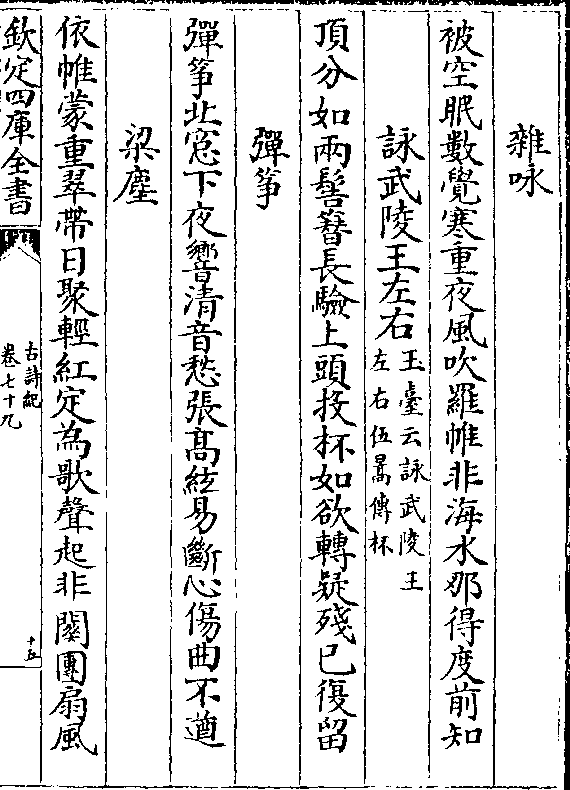 雜咏
被空眠數覺寒重夜風吹羅帷非海水那得度前知
詠武陵王左右
玉臺云詠武陵王
左右伍暠傳杯
頂分如兩髻簪長驗上頭投杯如欲轉疑殘已復留
彈箏
彈箏北窓下夜響清音愁張高絃易斷心傷曲不遒
梁塵
依帷蒙重翠帶日聚輕紅定為歌聲起非關團扇風
欽定四庫全書
古詩紀
卷七十九
十五